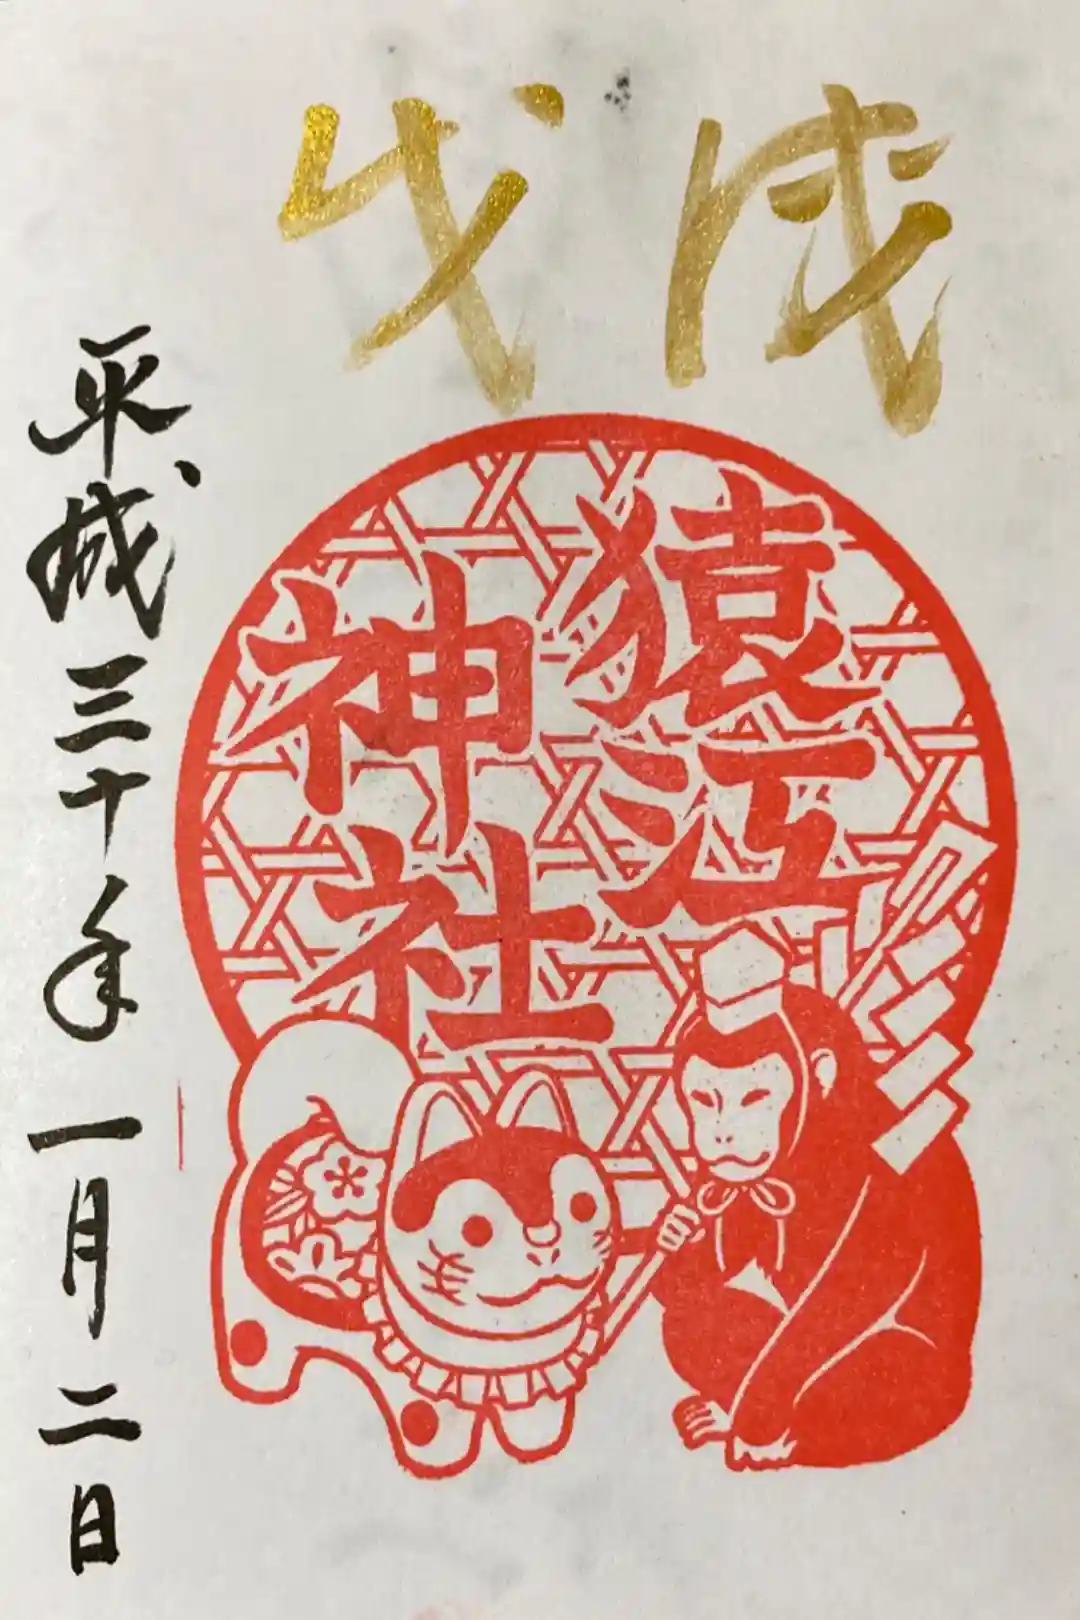 戊戌
猿江
神社
平成三十年一月二日